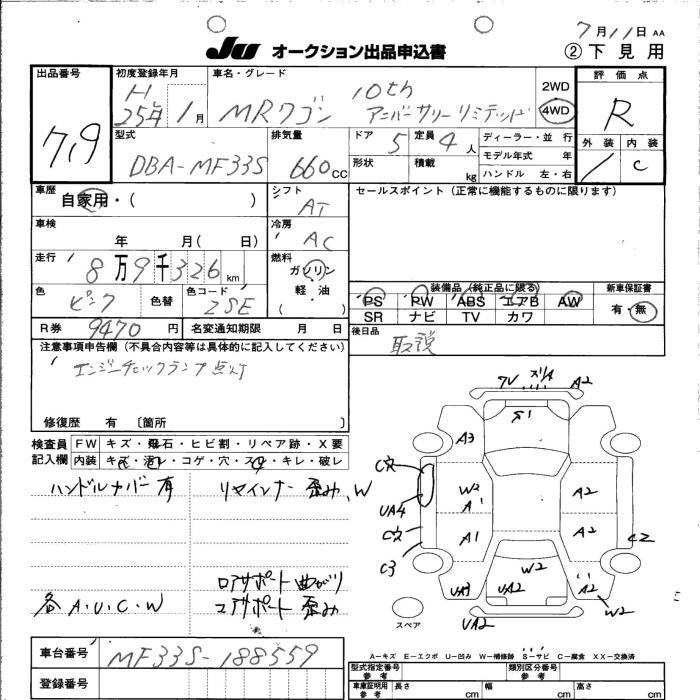 7月11日 AA
JU オークション出品申込書 ②下見用
出品番号 初度登録年月 車名・グレード 評価点
7,9 H 25年 1月 MRワゴン 10th アニバーサリーリミテッド 2WD 4WD R
外装 内装
1 C
型式 排気量 ドア 5 定員 4人 ディーラー・並行
DBA-MF33S 660cc 形状 積載 kg モデル年式 年
ハンドル 左・右
車歴 自家用・( ) シフト AT セールスポイント(正常に機能するものに限ります)
車検 年 月( 日) 冷房 AC
走行 8万9千326km 燃料 ガソリン 軽油・( )
色 ピンク 色替 色コード ZSE
装備品(純正品に限る) 新車保証書
PS PW ABS エアB AW 有・無
SR ナビ TV カワ
R券 9470円 名変通知期限 月 日 後日品 取説
注意事項申告欄(不具合内容等は具体的に記入してください)
エンジンチェックランプ点灯
修復歴 有 〔箇所 〕
検査員記入欄 FW キズ・飛石・ヒビ割・リペア跡・X要
内装 キズ・汚レ・コゲ・穴・スレ・キレ・破レ
ハンドルカバー有 リヤインナー歪み、W
ロアサポート曲がり
各A・U・C・W コアサポート歪み
7V A2
A3
C欠 W2 A2
UA4 A1
C欠 A1 A2
C3 C2
W2
UA3 UA2 A2
W2
UA2
スペア
A-キズ E-エクボ U-凹み W-補修跡 S-サビ C-腐食 XX-交換済
車台番号 MF33S-188559
登録番号
型式指定番号 参考 類別区分番号 参考
車庫証明用 参考 長さ cm 幅 cm 高さ cm